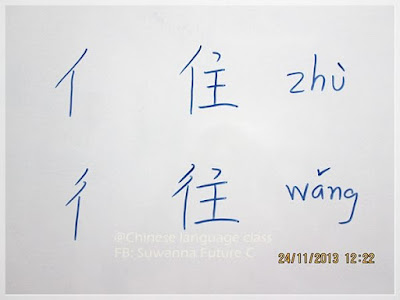 亻 住 zhù
彳 往 wǎng
@Chinese language class
FB: Suwanna Future C
24/11/2013 12:22